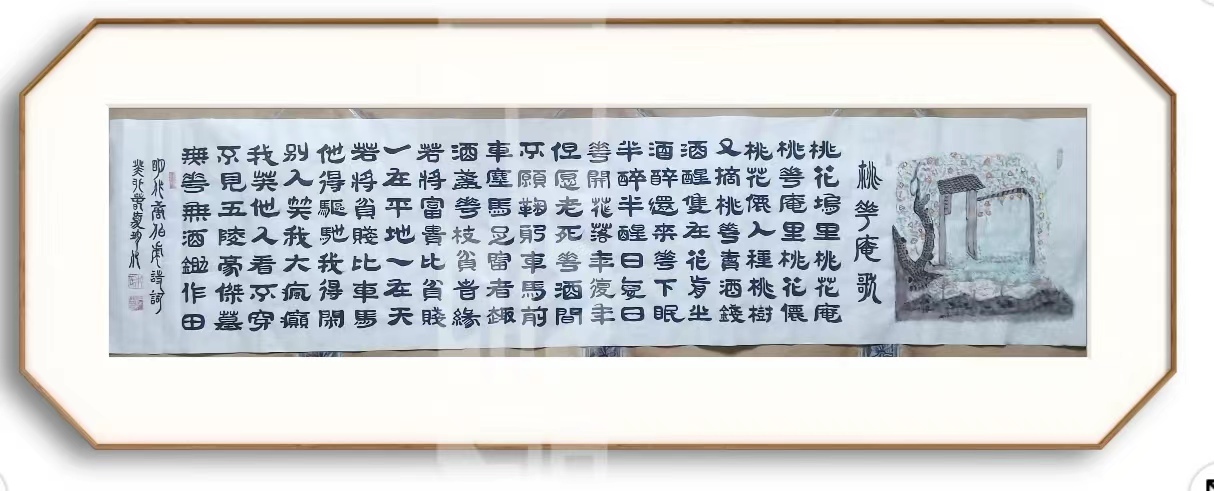 桃華庵歌
桃花塢里桃花庵
桃華庵里桃花僊
桃花僊人種桃樹
又摘桃華賣酒錢
酒醒隻在花前坐
酒醉還來華下眠
半醉半醒日復日
華開花落年復年
但愿老死華酒間
不願鞠躬車馬前
車塵馬足富者趣
酒盞華枝貧者緣
若將富貴比貧賤
一在平地一在天
若將貧賤比車馬
他得驅馳我得閑
別人笑我大瘋癲
我笑他人看不穿
不見五陵豪傑墓
無華無酒鋤作田
明代唐伯虎詩詞